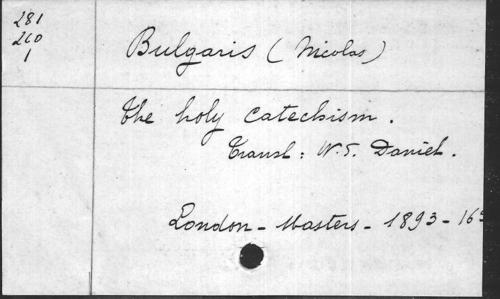 281
260
1
Bulgaris (Nicolas)
The holy catechism.
Transl: W. E. Daniel.
London - Masters - 1893 - 16